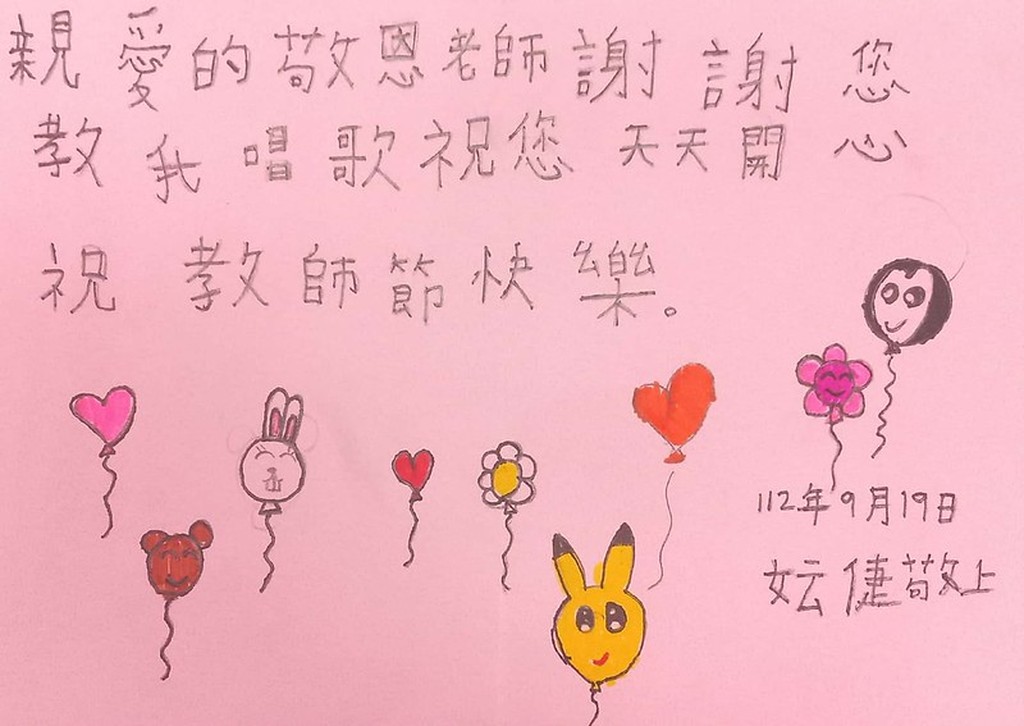 親愛的敬恩老師謝謝您
教我唱歌祝您天天開心
祝教師節快樂。
112年9月19日
妘倢敬上